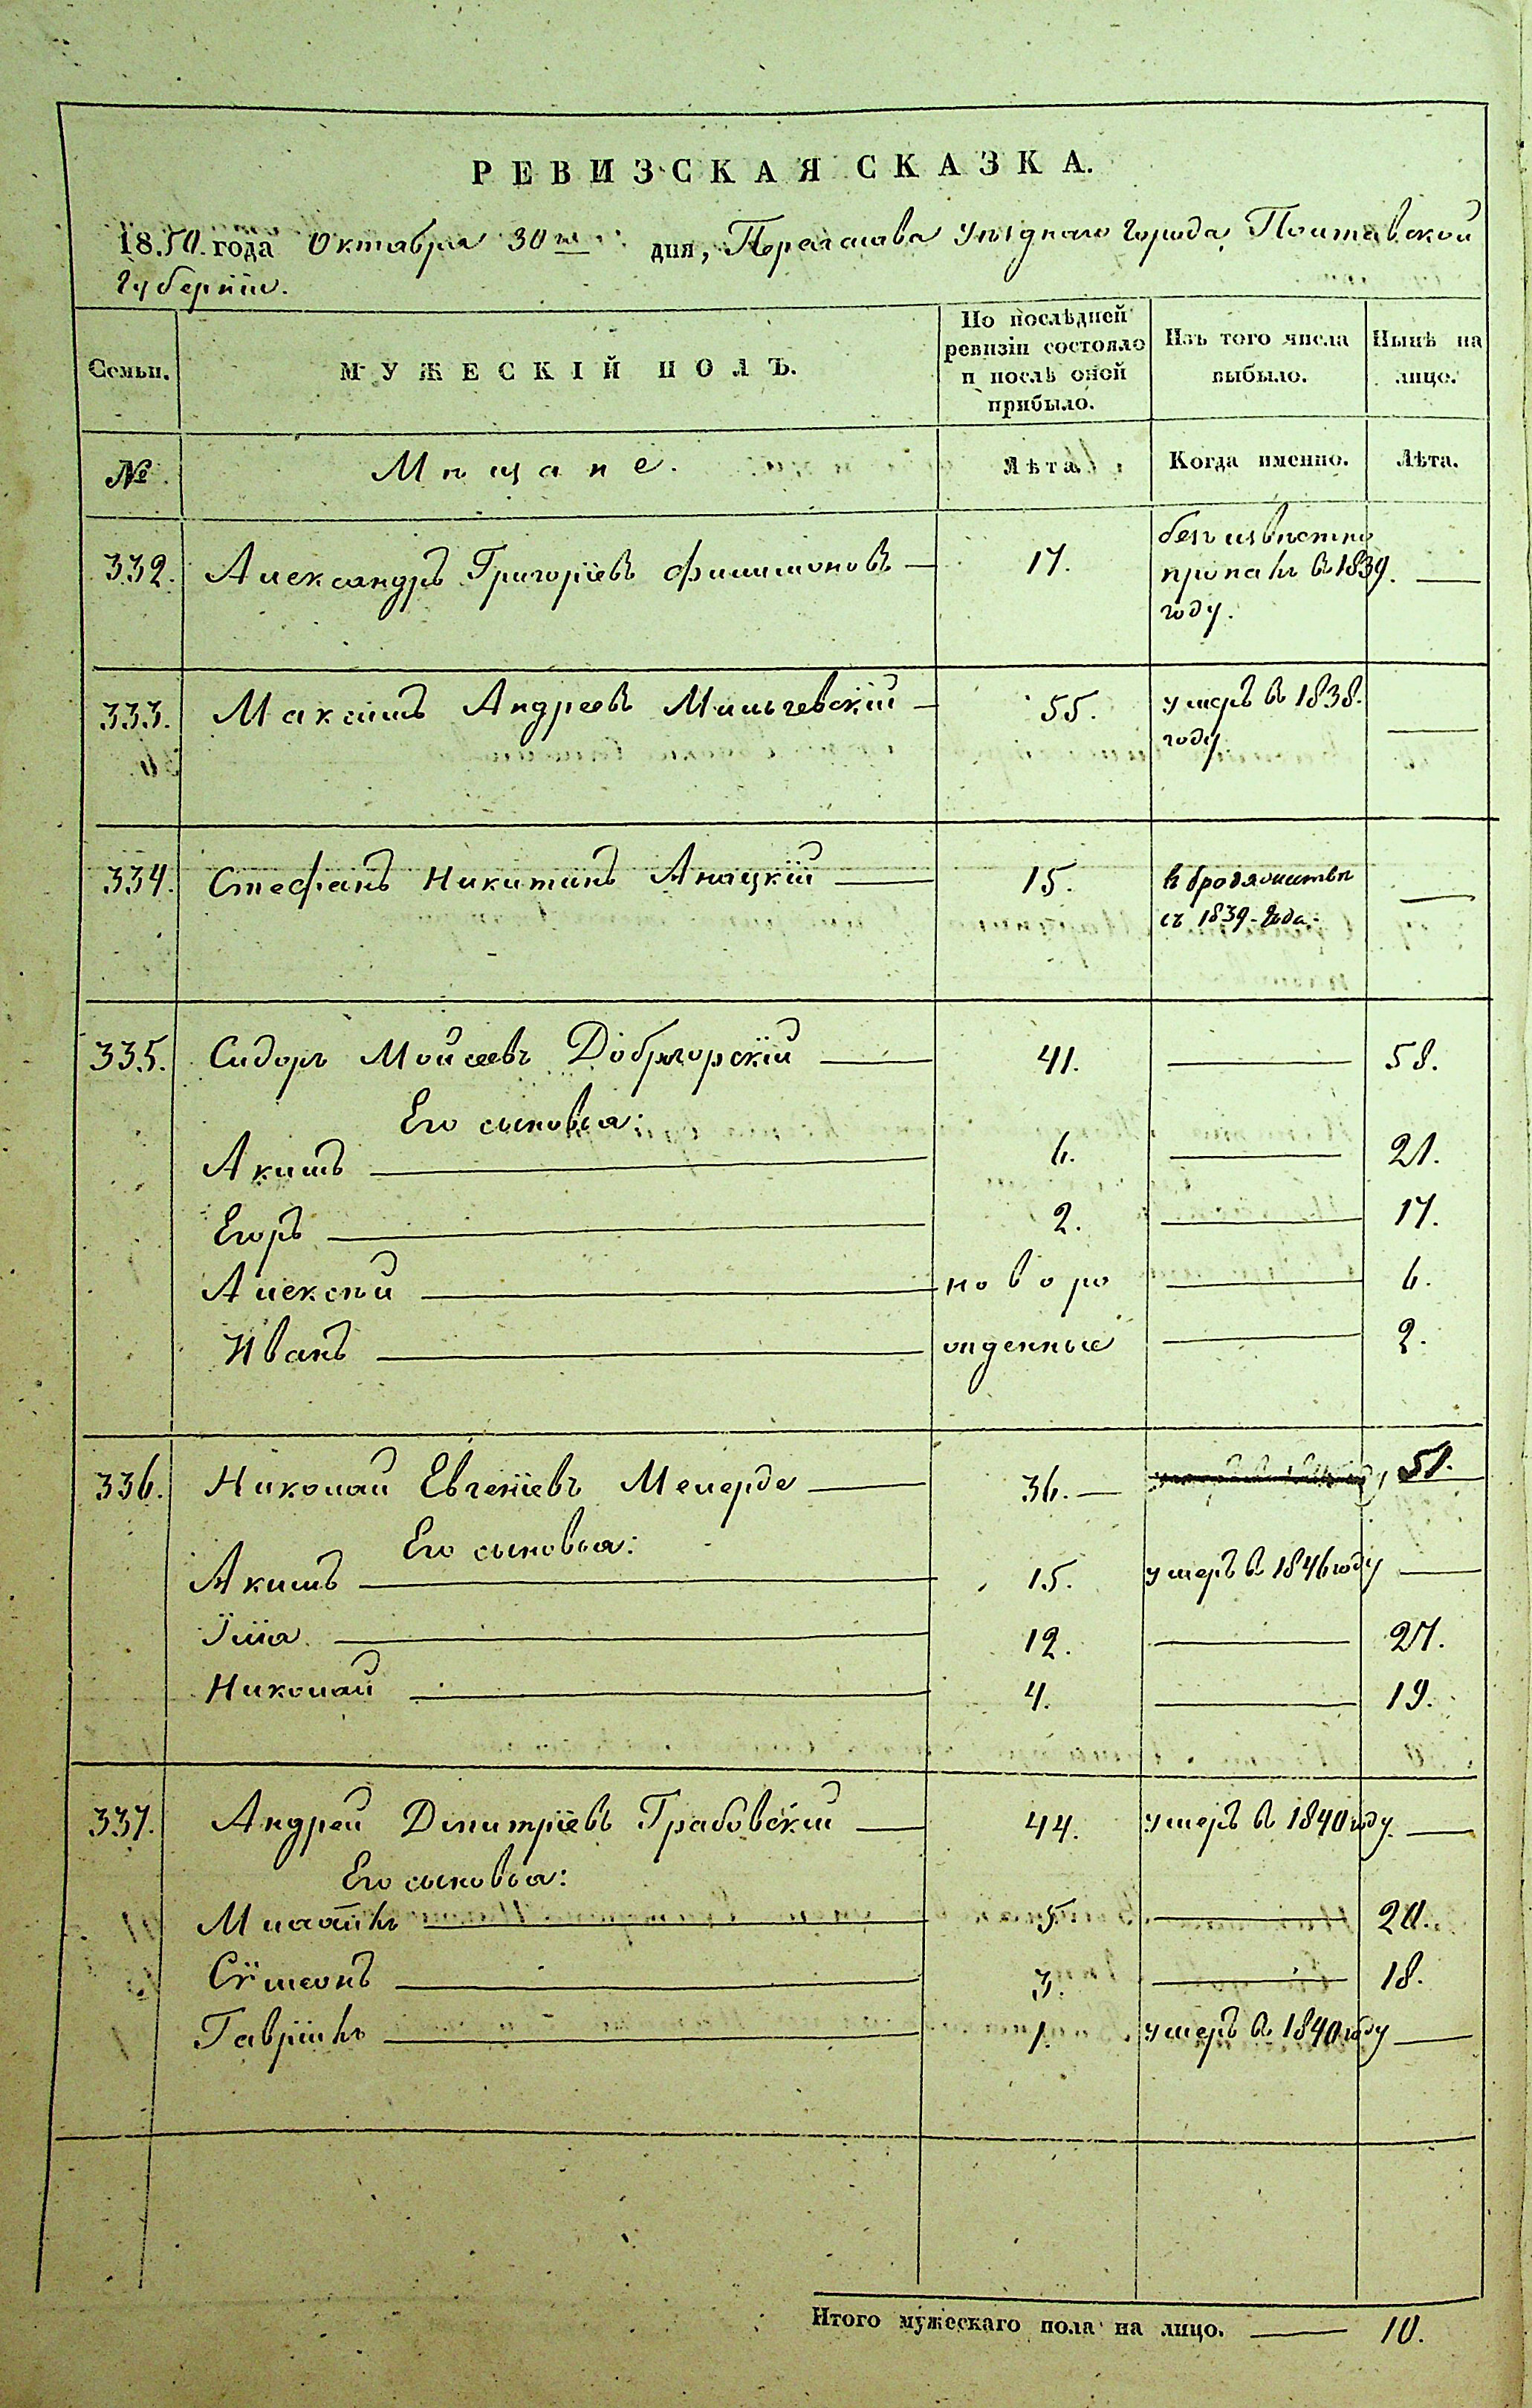 РЕВИЗСКАЯ СКАЗКА.
1850. года Октября 30го дня, Переяслава Уѣзднаго города, Полтавской
Губерніи.
Семьи. МУЖЕСКІЙ ПОЛЪ. По послѣдней ревизіи состояло и послѣ оной прибыло. Изъ того числа выбыло. Нынѣ на лице.
№ Мѣщане. Лѣта. Когда именно. Лѣта.
332. Александръ Григоріевъ Филимоновъ 17. безъ извѣстно
пропалъ въ 1839.
году.
333. Максимъ Андреевъ Мильчевскій 55. умеръ въ 1838.
году
334. Стефанъ Никитинъ 15. въ бродяжествѣ
съ 1839 года.
335. Сидоръ Мойсеевъ Доброгорскій 41. 58.
Его сыновья:
Акимъ 6. 21.
Егоръ 2. 17.
Алексѣй новоро 6.
Иванъ жденные 2.
336. Николай Евгеніевъ Мелерде 36. 51.
Его сыновья:
Акимъ 15. умеръ въ 1846 году
Илія 12. 27.
Николай 4. 19.
337. Андрей Димитріевъ Грабовскій 44. умеръ въ 1840 году.
Его сыновья:
Михаилъ 5. 20.
Сѵмеонъ 3. 18.
Гавріилъ 1. умеръ въ 1840 году
Итого мужескаго пола на лицо. 10.